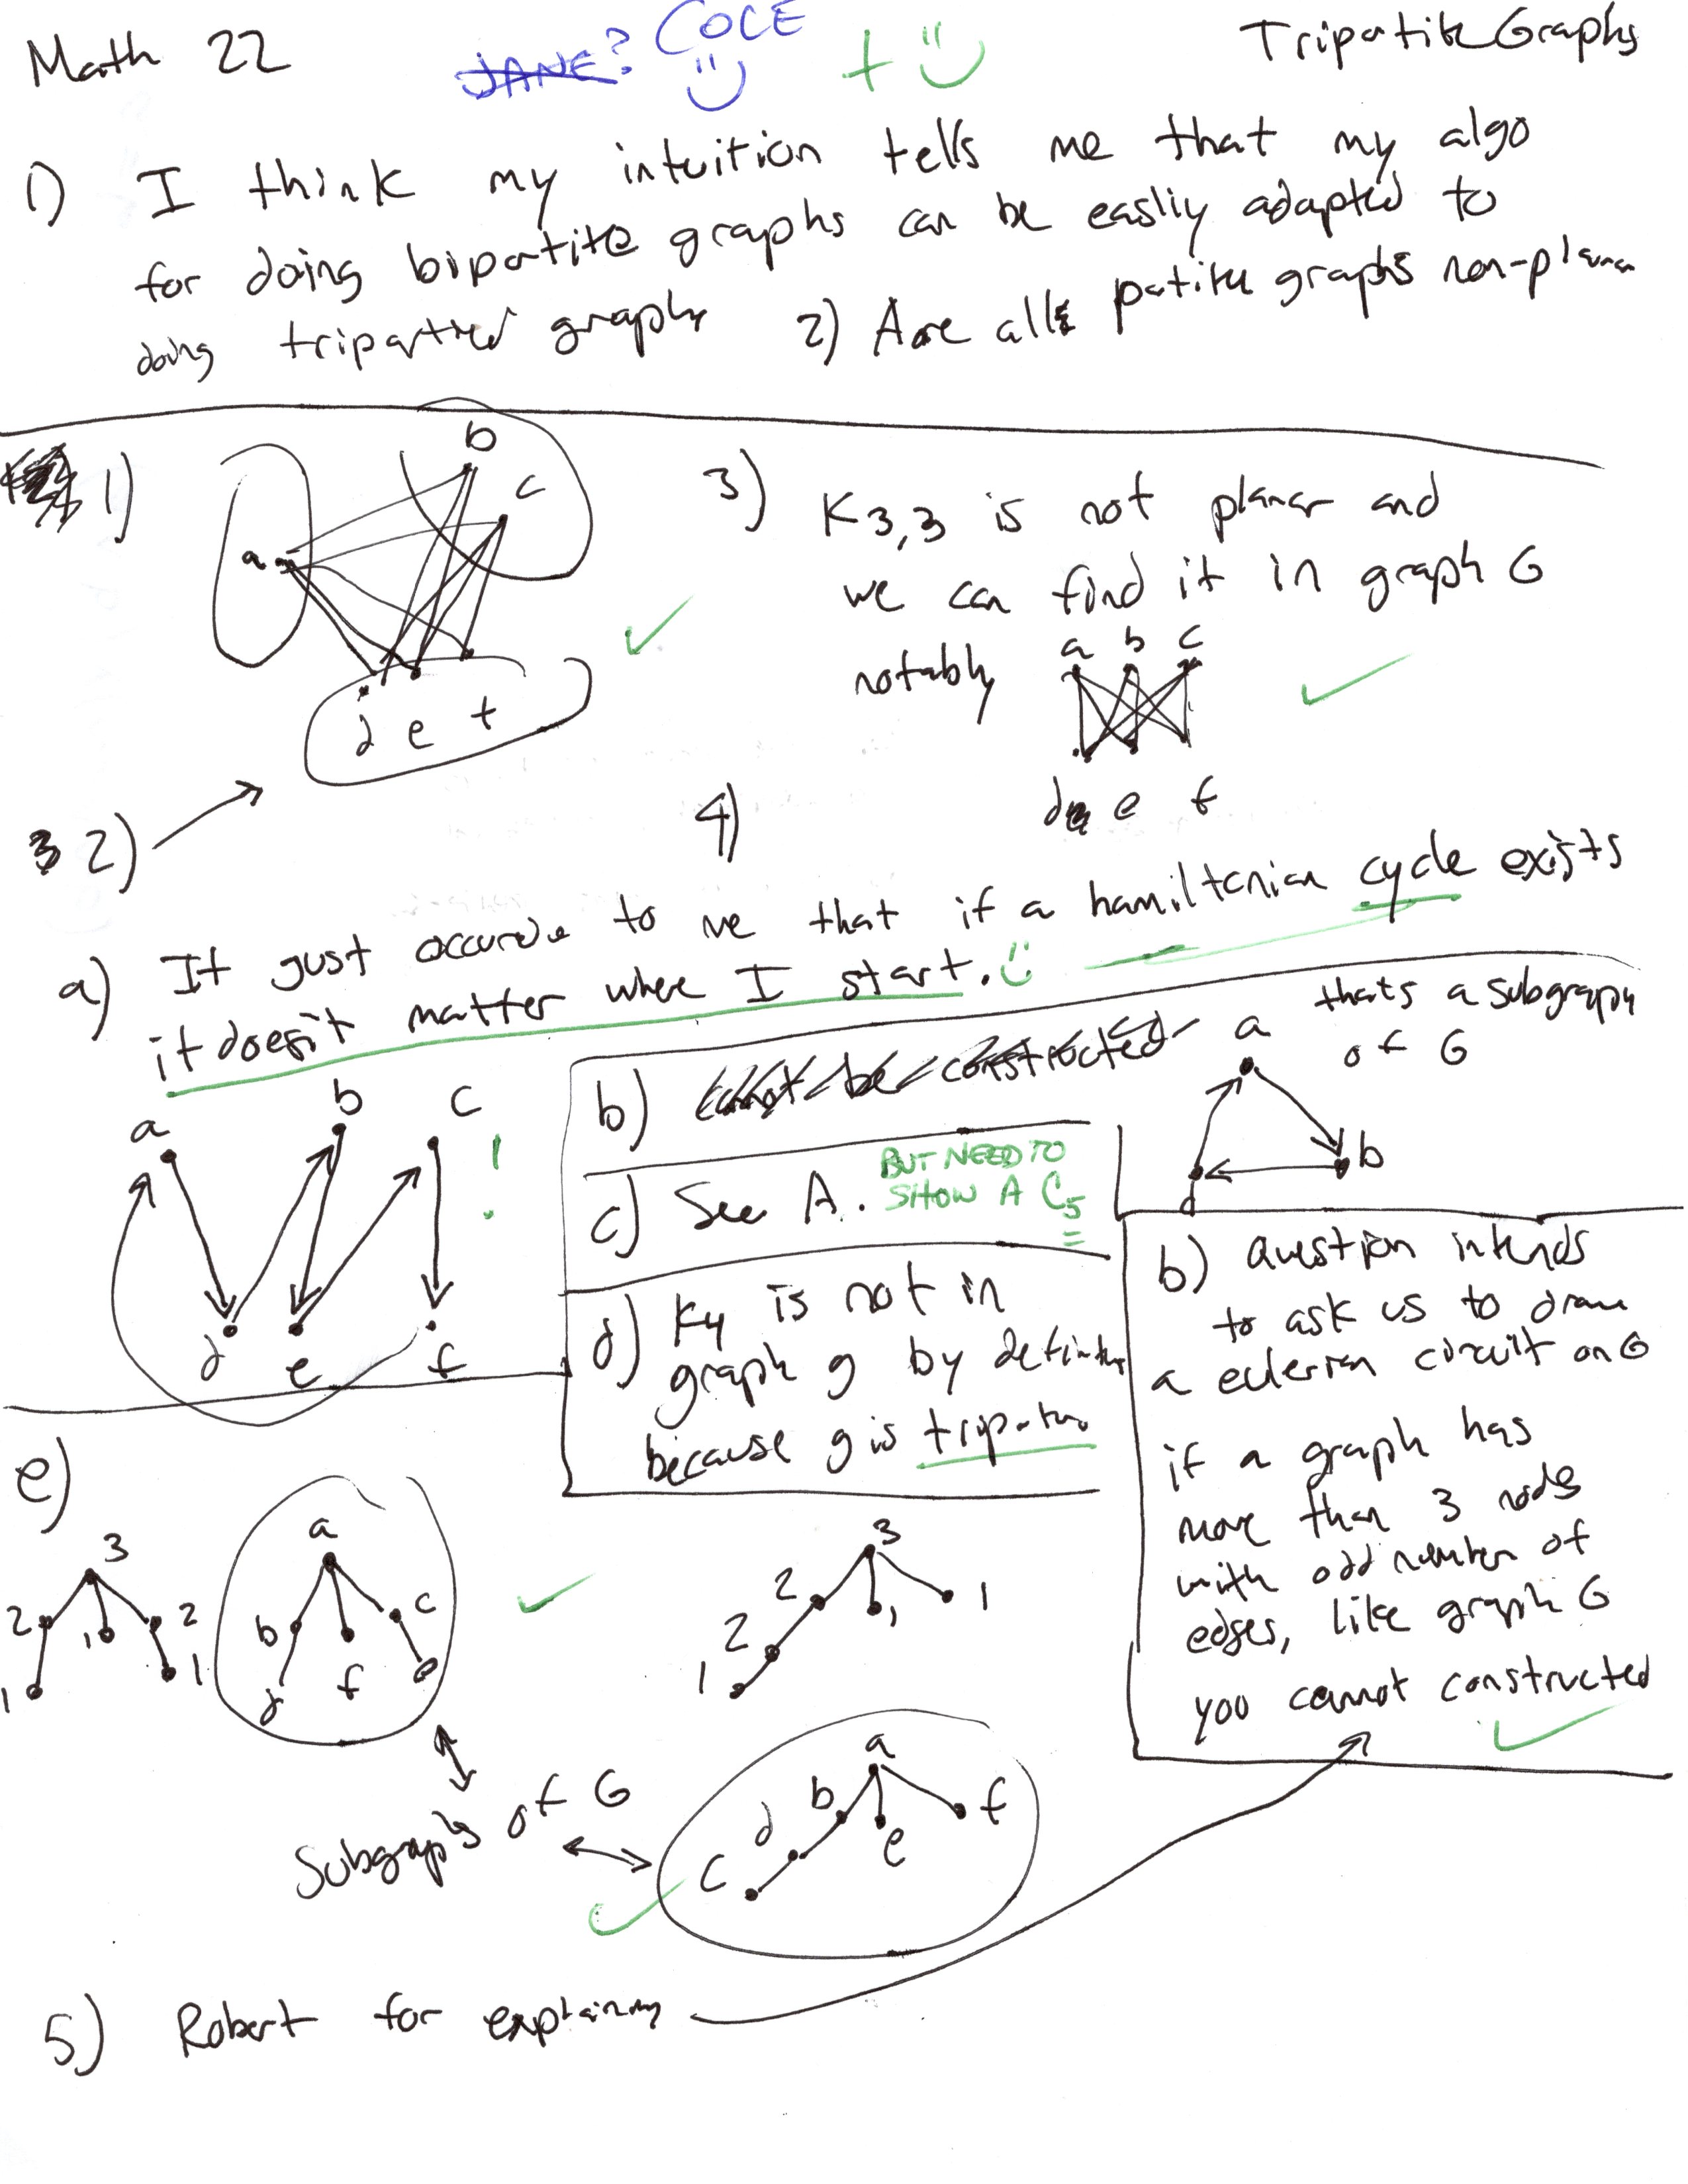 Math 22
JANE? COLE
+
Tripatite Graphs
1) I think my intuition tells me that my algo
for doing bipartite graphs can be easliy adapted to
doing tripartted graphs
2) Are all patite graphs non-planar
1)
b
c
a
d e f
3) K3,3 is not planar and
we can find it in graph G
notably
a b c
d e f
3 2)
4)
a) It just occurde to me that if a hamiltonian cycle exists
it doesn't matter where I start.
a b c
!
d e f
b) cannot be constructed
thats a subgraph
of G
a
b
d
c) See A.
BUT NEED TO
SHOW A C5
d) K4 is not in
graph g by definition
because g is
b) Question intends
to ask us to draw
a eulerian circuit on G
if a graph has
more than 3 nodes
with odd number of
edges, like graph G
you cannot constructed
e)
3
2 1 2
1 1
a
b c
d f e
3
2 1 1
2
1
Subgraphs of G
a
b e f
d
c
5) Robert for explaining